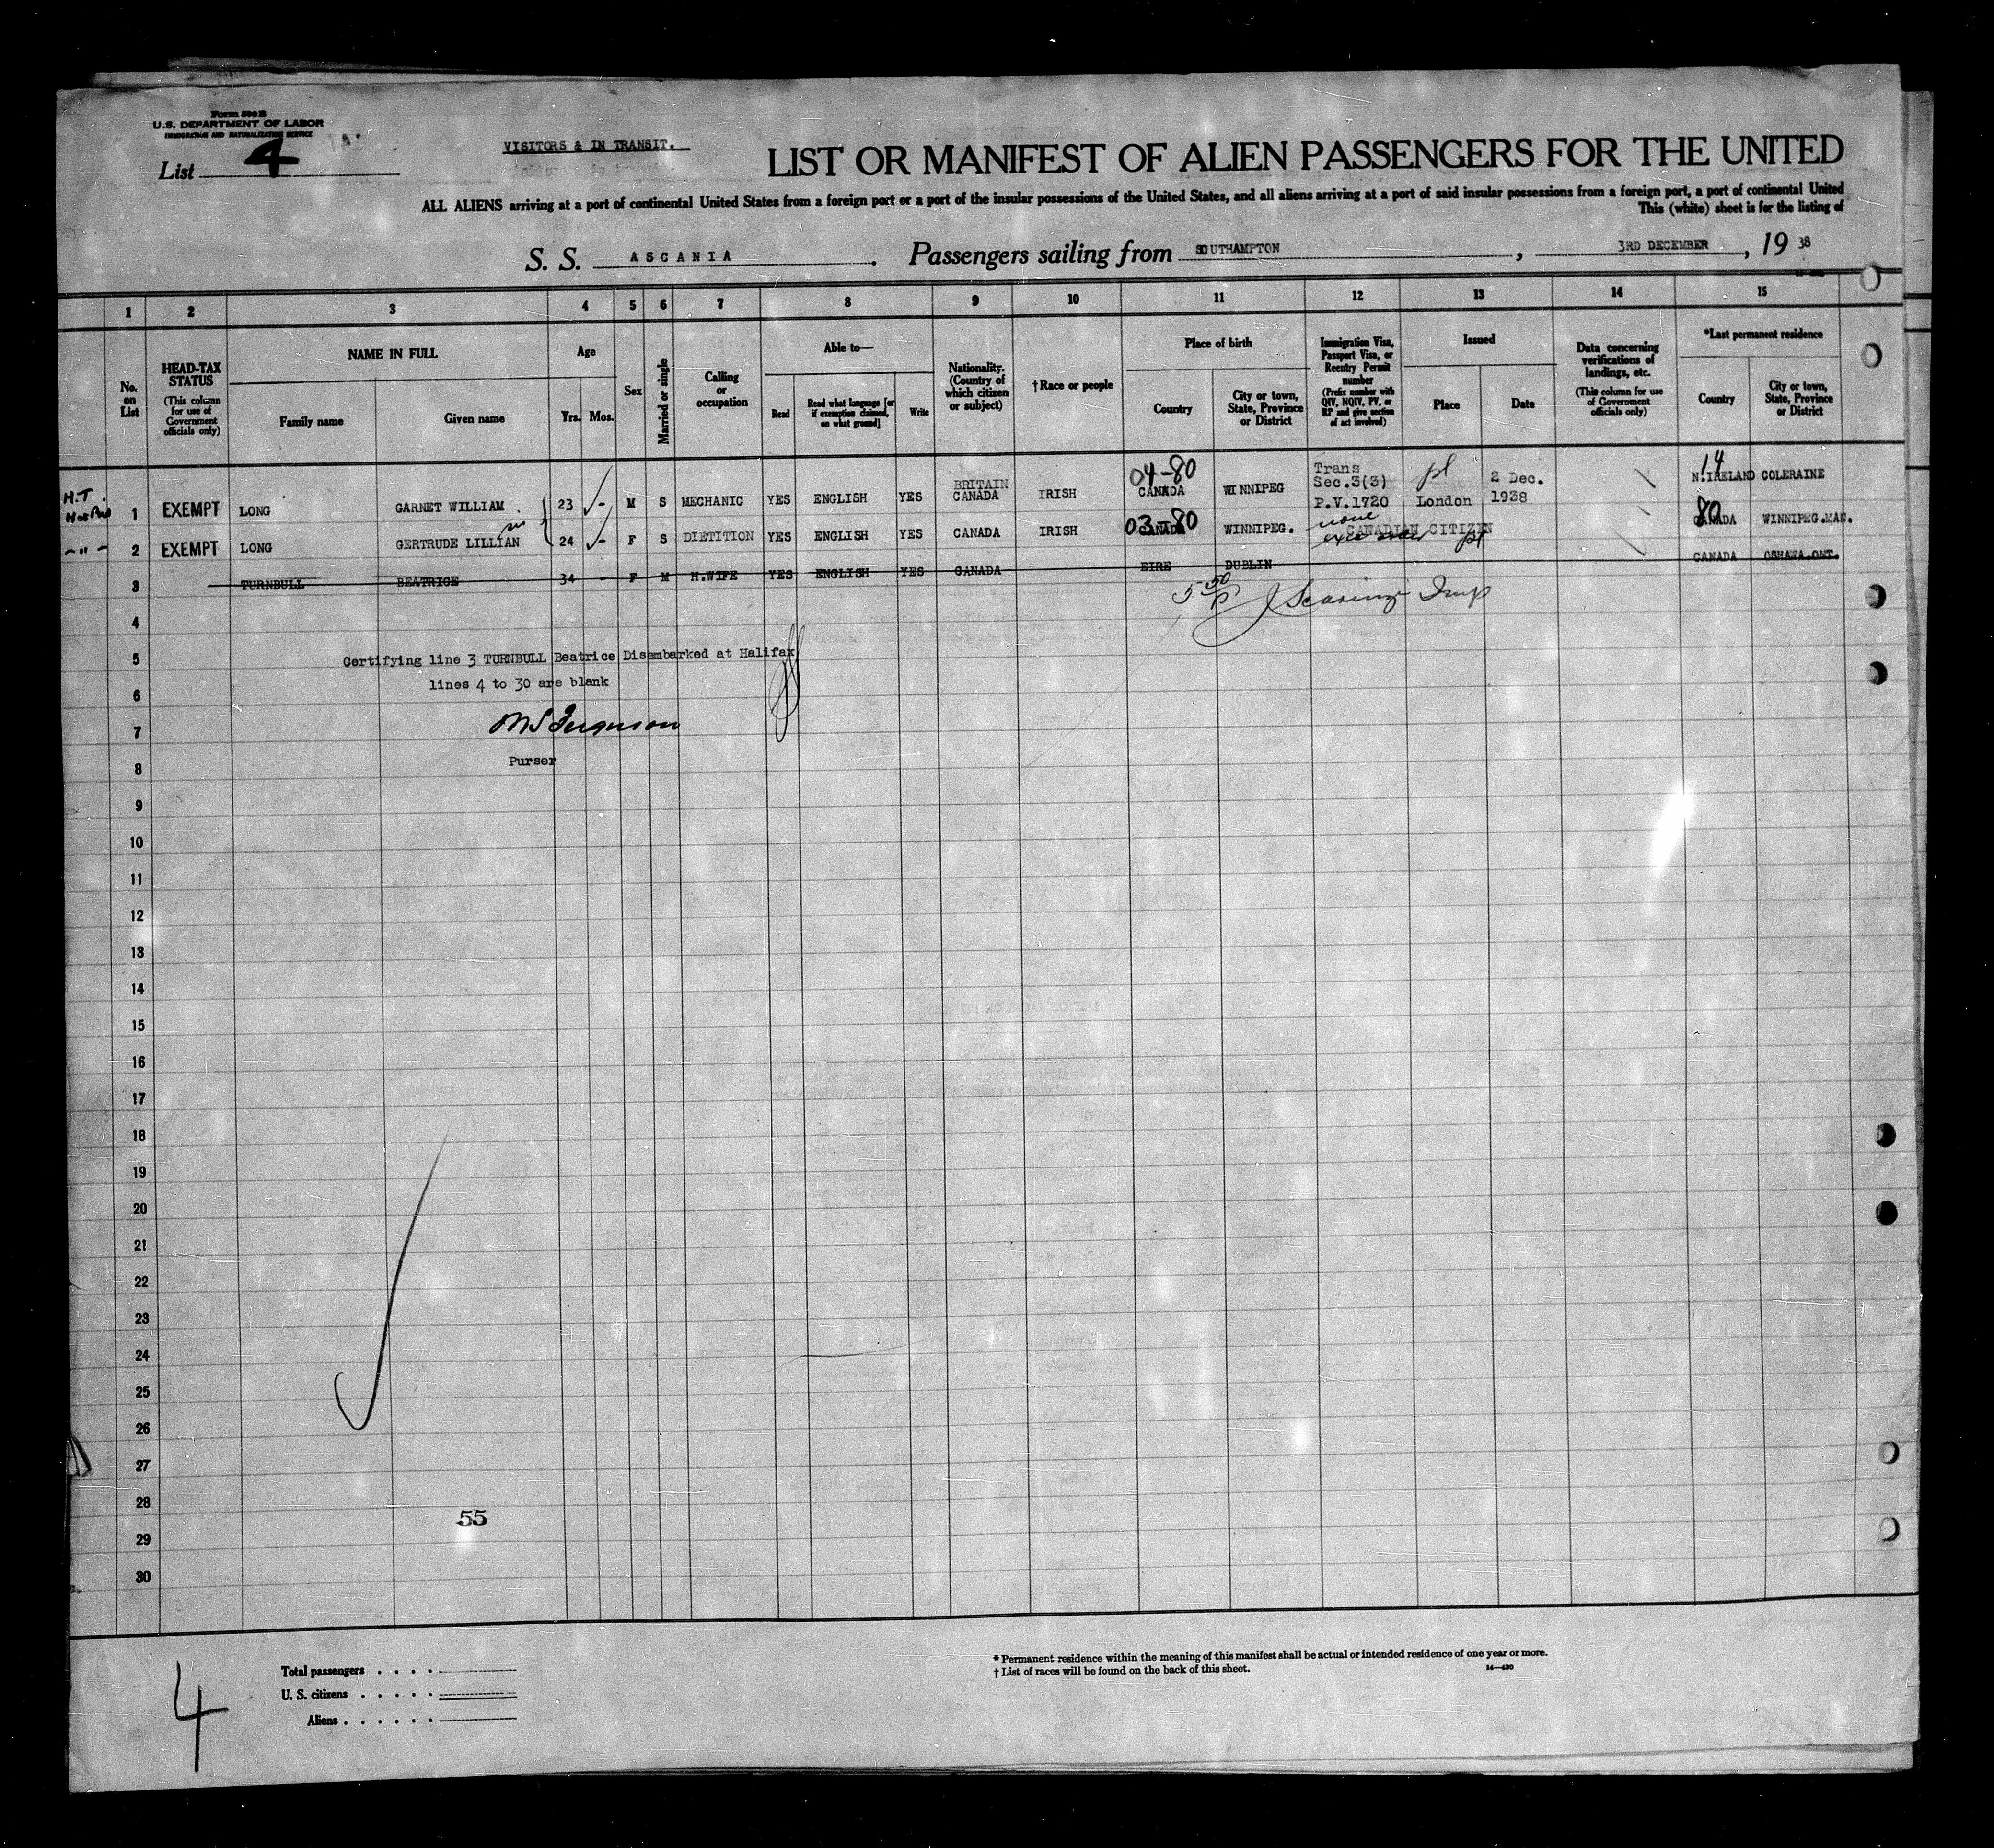 Form 500 B
U.S. DEPARTMENT OF LABOR
IMMIGRATION AND NATURALIZATION SERVICE
List 4
VISITORS & IN TRANSIT.
LIST OR MANIFEST OF ALIEN PASSENGERS FOR THE UNITED
ALL ALIENS arriving at a port of continental United States from a foreign port or a port of the insular possessions of the United States, and all aliens arriving at a port of said insular possessions from a foreign port, a port of continental United
This (white) sheet is for the listing of
S. S. ASCANIA. Passengers sailing from SOUTHAMPTON, 3RD DECEMBER, 19 38
1 2 3 4 5 6 7 8 9 10 11 12 13 14 15
No. on List
HEAD-TAX STATUS (This column for use of Government officials only)
NAME IN FULL
Family name Given name
Age
Yrs. Mos.
Sex
Married or single
Calling or occupation
Able to—
Read Read what language [or if exemption claimed, on what ground] Write
Nationality. (Country of which citizen or subject)
†Race or people
Place of birth
Country City or town, State, Province or District
Immigration Visa, Passport Visa, or Reentry Permit number (Prefix number with QIV, NQIV, PV, or RP and give section of act involved)
Issued
Place Date
Data concerning verifications of landings, etc. (This column for use of Government officials only)
*Last permanent residence
Country City or town, State, Province or District
H.T. 1 EXEMPT LONG GARNET WILLIAM 23 - M S MECHANIC YES ENGLISH YES BRITAIN CANADA IRISH 04-80 CANADA WINNIPEG Trans Sec.3(3) P.V.1720 pl London 2 Dec. 1938 14 N.IRELAND COLERAINE
-"- 2 EXEMPT LONG GERTRUDE LILLIAN 24 - F S DIETITION YES ENGLISH YES CANADA IRISH 03-80 CANADA WINNIPEG. none CANADIAN CITIZEN pl 80 CANADA WINNIPEG.MAN.
3 TURNBULL BEATRICE 34 - F M H.WIFE YES ENGLISH YES CANADA EIRE DUBLIN CANADA OSHAWA.ONT.
4
5 Certifying line 3 TURNBULL Beatrice Disembarked at Halifax
6 lines 4 to 30 are blank
7 Ferguson
8 Purser
9
10
11
12
13
14
15
16
17
18
19
20
21
22
23
24
25
26
27
28
55
29
30
4
Total passengers . . . .
U. S. citizens . . . . .
Aliens . . . . . .
* Permanent residence within the meaning of this manifest shall be actual or intended residence of one year or more.
† List of races will be found on the back of this sheet. 14—430